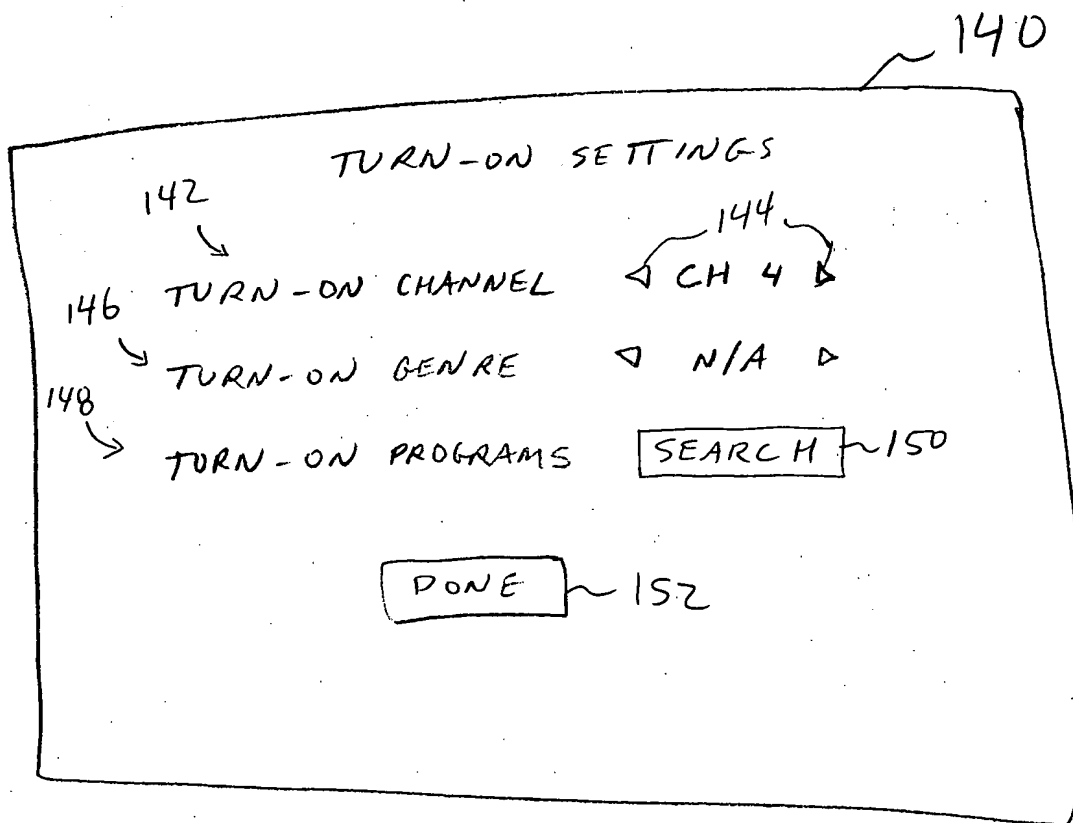 140
TURN-ON SETTINGS
142
144
TURN-ON CHANNEL ◁ CH 4 ▷
146
TURN-ON GENRE ◁ N/A ▷
148
TURN-ON PROGRAMS SEARCH 150
DONE 152